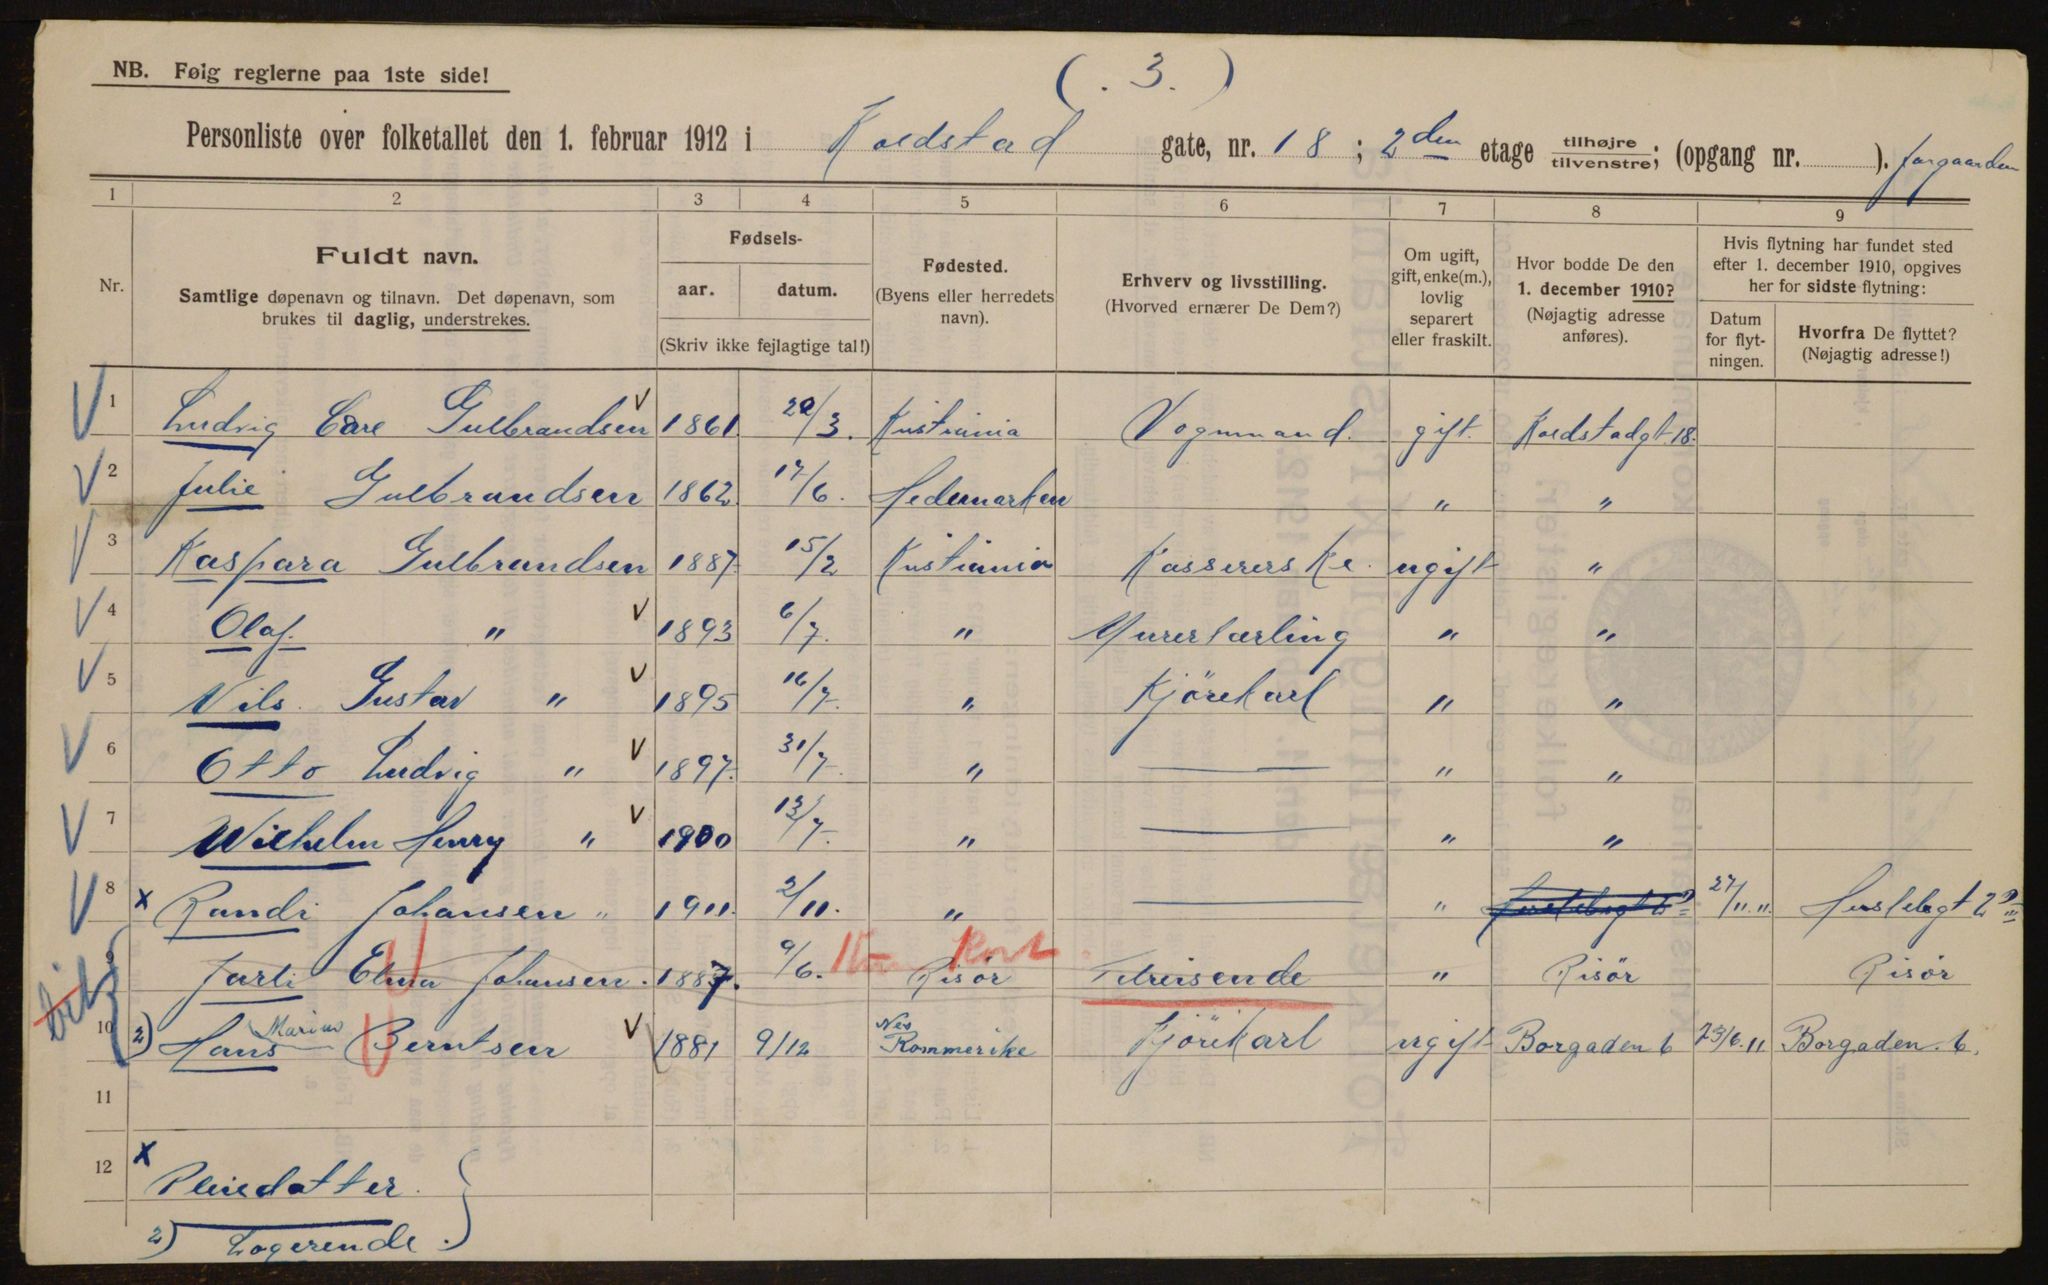 ( . 3. )
NB. Følg reglerne paa 1ste side!
Personliste over folketallet den 1. februar 1912 i Koldstad gate, nr. 18 ; 2den etage tilhøjre tilvenstre; (opgang nr. ). forgaarden
1 2 3 4 5 6 7 8 9
Nr.
Fuldt navn.
Samtlige døpenavn og tilnavn. Det døpenavn, som
brukes til daglig, understrekes.
Fødsels-
aar. datum.
(Skriv ikke fejlagtige tal!)
Fødested.
(Byens eller herredets
navn).
Erhverv og livsstilling.
(Hvorved ernærer De Dem?)
Om ugift,
gift, enke(m.),
lovlig
separert
eller fraskilt.
Hvor bodde De den
1. december 1910?
(Nøjagtig adresse
anføres).
Hvis flytning har fundet sted
efter 1. december 1910, opgives
her for sidste flytning:
Datum
for flyt-
ningen.
Hvorfra De flyttet?
(Nøjagtig adresse!)
V 1 Ludvig Carl Gulbrandsen V 1861. /3. Kristiania Vognmand. gift. Koldstadgt. 18.
V 2 Julie Gulbrandsen 1862. 17/6. Hedemarken " "
V 3 Kaspara Gulbrandsen 1887. 15/2 Kristiania Kassererske. ugift "
V 4 Olaf. " V 1893 6/7. " Murerlærling " "
V 5 Nils. Gustav " V 1895 16/7. " Kjörekarl " "
V 6 Otto Ludvig " V 1897. 31/7. " — " "
V 7 Wilhelm Henry " V 1900 13/7. " — " "
V 8 x Randi Johansen " 1911. 2/11. " — " 27/11. 11.
9 Elma Johansen. 1887. 9/6. Risör Tilreisende " Risör Risör
10 2) Hans Marius Berntsen V 1881 9/12 Nes Rommerike Kjörekarl ugift Borgaden 6 23/6. 11 Borgaden. 6.
11
12 x Pleiedatter.
2) Logerende.